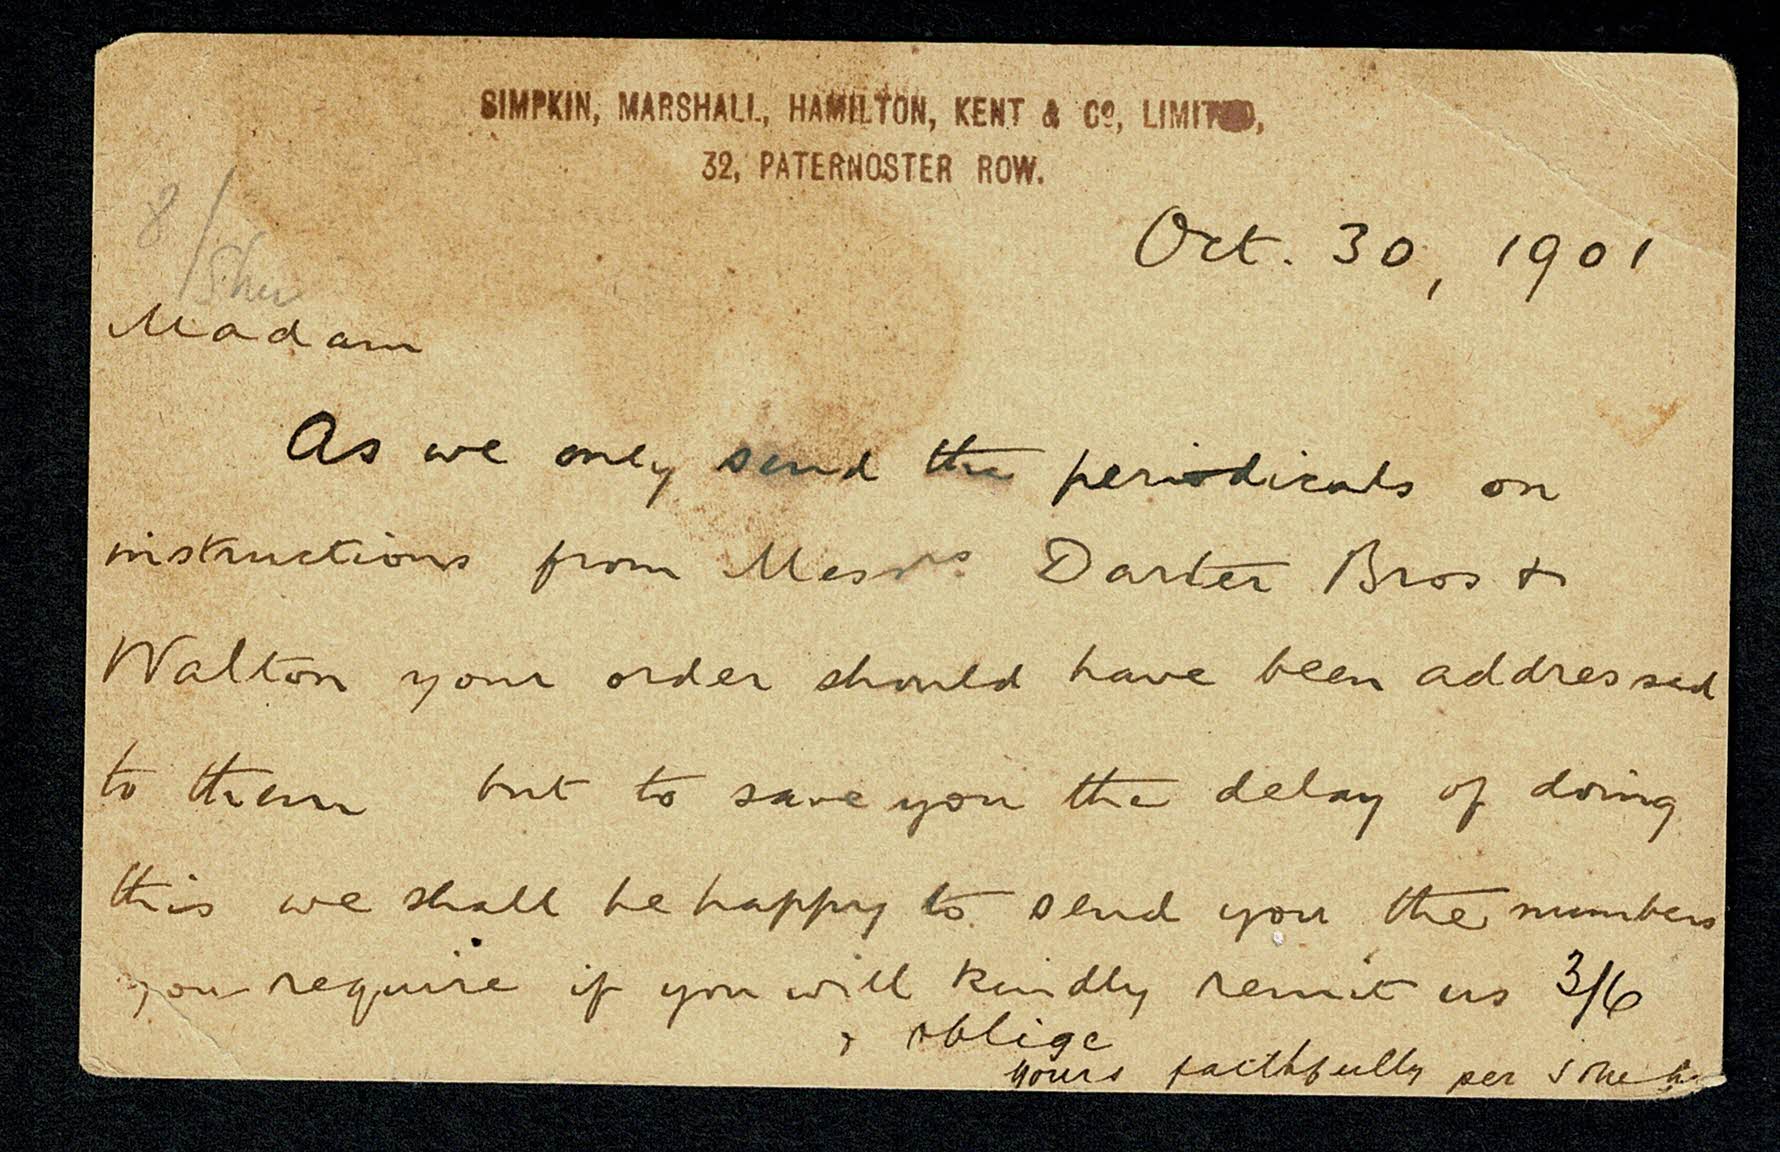 SIMPKIN, MARSHALL, HAMILTON, KENT & Co, LIMITED,
32, PATERNOSTER ROW.
8/
Oct. 30, 1901
Madam
As we only send the periodicals on
instructions from Messrs Darter Bros &
Walton your order should have been addressed
to them but to save you the delay of doing
this we shall be happy to send you the numbers
you require if you will kindly remit us 3/6
& oblige
yours faithfully per